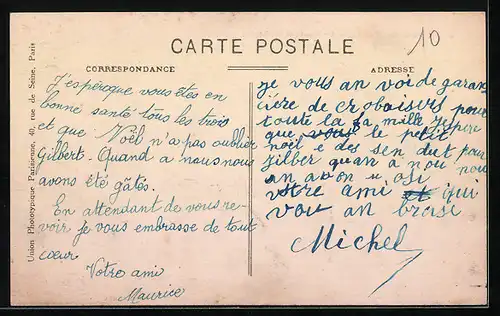 10
CARTE POSTALE
CORRESPONDANCE
ADRESSE
Union Phototypique Parisienne, 40, rue de Seine, Paris
J'espère que vous êtes en
bonne santé tous les trois
et que Noël n'a pas oublier
Gilbert. Quand a nous nous
avons été gâtés.
En attendant de vous re-
voir je vous embrasse de tout
cœur
Votre ami
Maurice
je vous an voi de garan
cière de crobaisurs pour
toute la fa mille jespere
que vous le petit
noël e des sen dut pour
jilber quan à nou nou
an avon u osi
votre ami et qui
vou an brasi
Michel